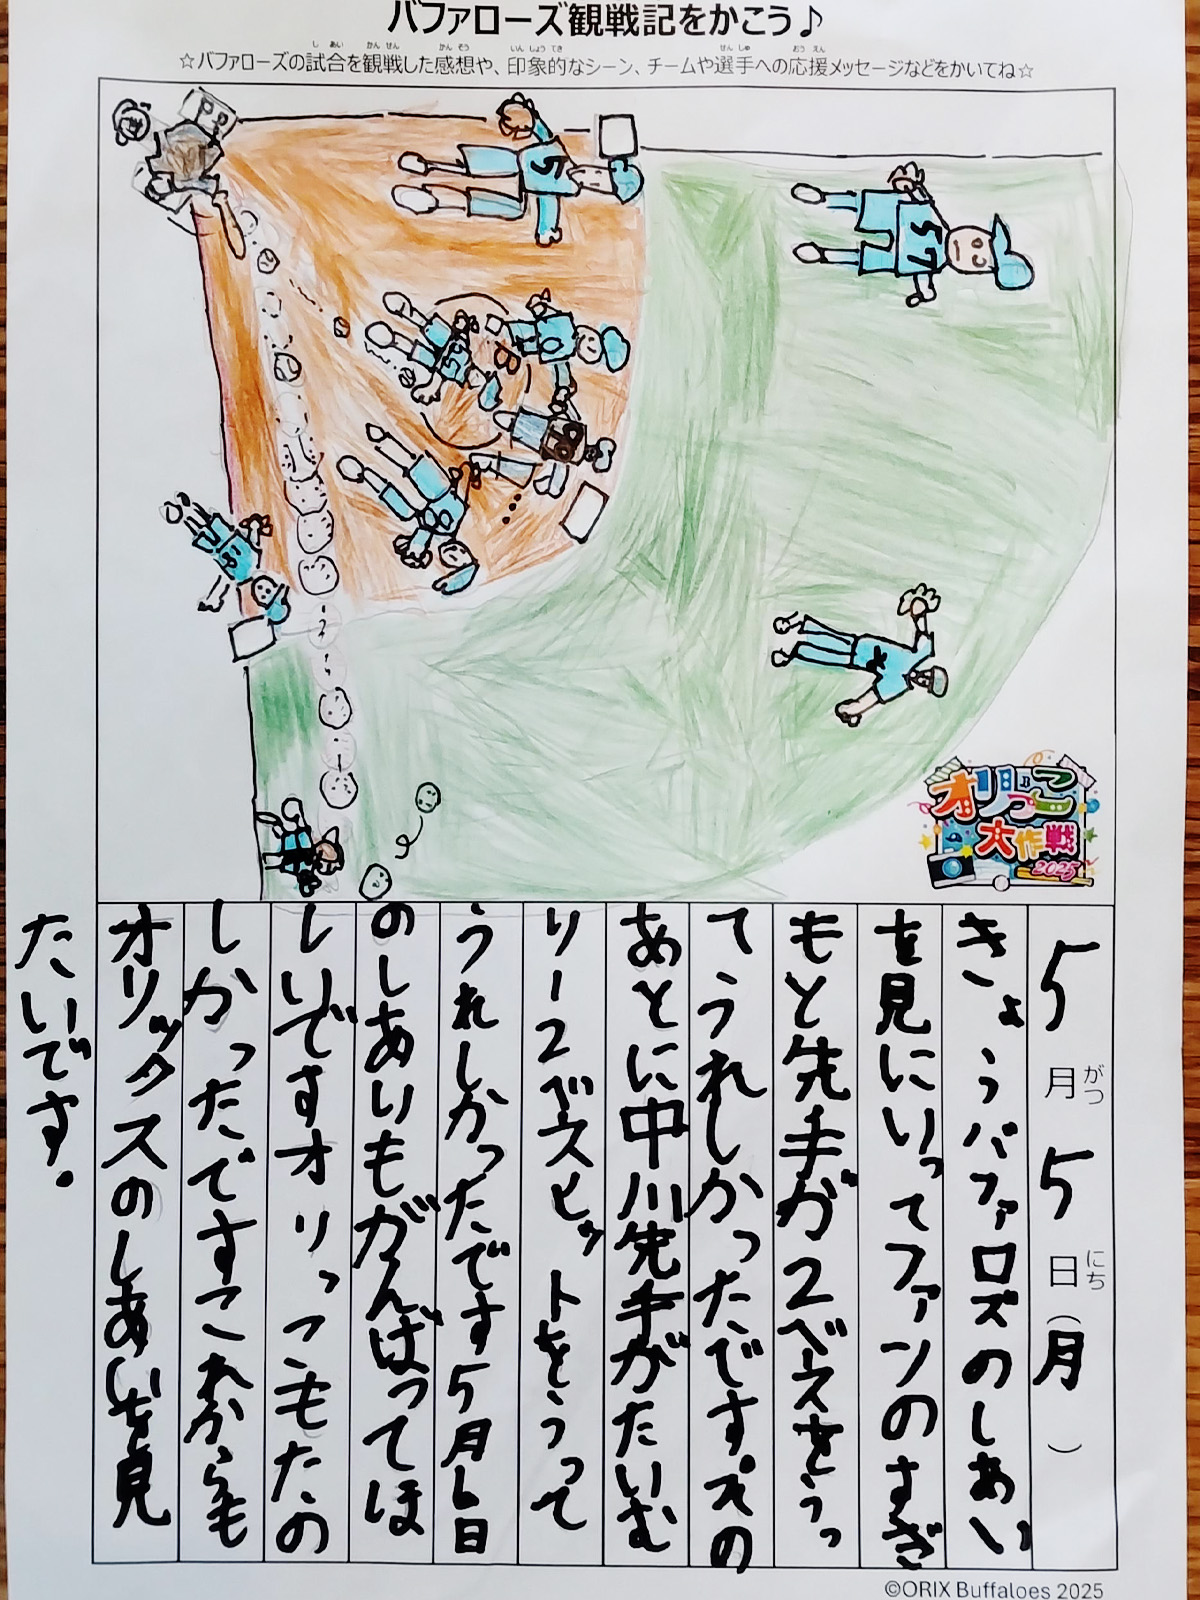 バファローズ観戦記をかこう♪
☆バファローズの試合を観戦した感想や、印象的なシーン、チームや選手への応援メッセージなどをかいてね☆
5
57
オリっこ
大作戦
2025
5月5日(月)
きょうバファロズのしあい
を見にいってファンのすぎ
もと先手が2ベスをうっ
てうれしかったです。その
あとに中川先手がたいむ
りー2ベスヒットをうって
うれしかったです5月6日
のしあいもがんばってほ
しいですオリっこもたの
しかったですこれからも
オリックスのしあいを見
たいです。
©ORIX Buffaloes 2025